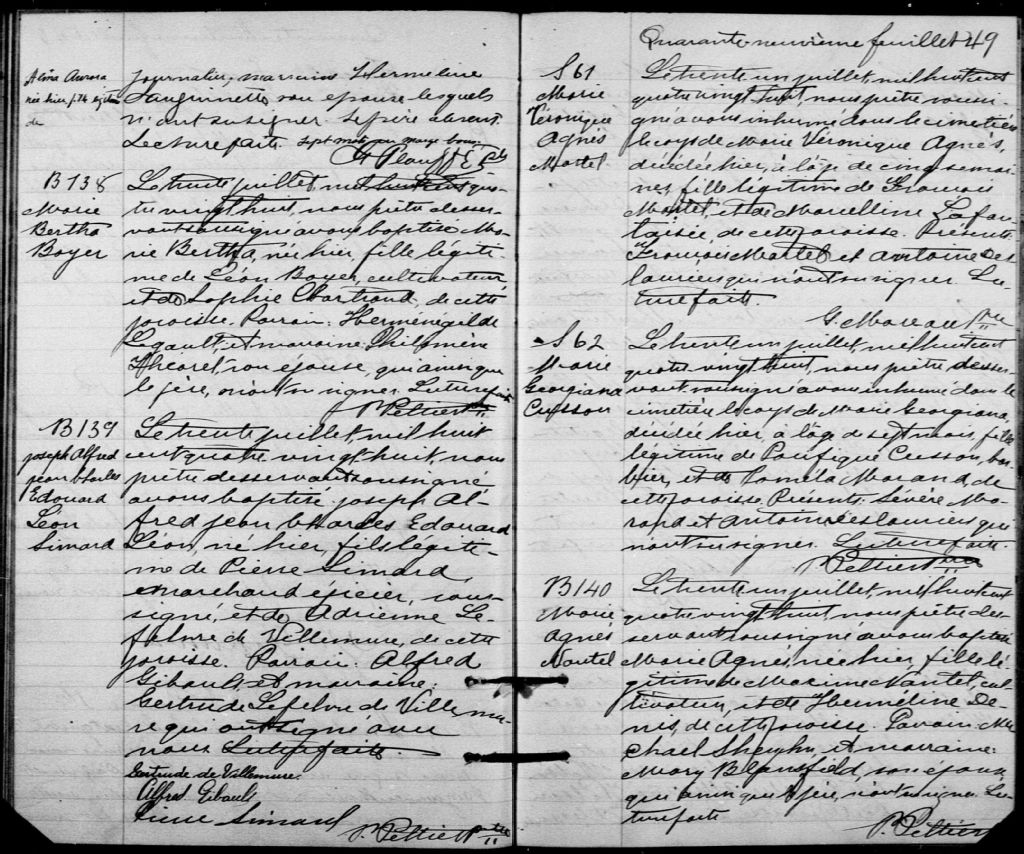 Alina Aurora
née hier, fille légitime
de
journalier, marraine Hermeline
Sanguinette son épouse lesquels
n'ont su signer. Le père absent.
Lecture faite. sept mots en marge bons.
B 138
Marie
Bertha
Boyer
Le trente juillet, mil huit cent qua-
tre vingt huit, nous prêtre desser-
vant soussigné avons baptisé Ma-
rie Bertha, née hier, fille légiti-
me de Léon Boyer, cultivateur,
et de Sophie Chartrand, de cette
paroisse. Parrain: Herménégilde
Legault, et marraine Philomène
Théoret, son épouse, qui ainsi que
le père, n'ont su signer. Lecture faite
P. Peltier Ptre
B 139
Joseph Alfred
Jean Charles
Edouard
Léon
Simard
Le trente juillet, mil huit
cent quatre vingt huit, nous
prêtre desservant soussigné
avons baptisé Joseph Al-
fred Jean Charles Edouard
Léon, né hier, fils légiti-
me de Pierre Simard,
marchand épicier, sous-
signé, et de Adrienne Le-
febvre de Villemure, de cette
paroisse. Parrain: Alfred
Gibault, et marraine:
Gertrude Lefebvre de Villemu-
re qui ont signé avec
nous. Lecture faite.
Gertrude de Villemure
Alfred Gibault
Pierre Simard
P. Peltier Ptre
Quarante neuvième feuillet 49
S 61
Marie
Véronique
Agnès
Martel
Le trente un juillet, mil huit cent
quatre vingt huit, nous prêtre soussi-
gné avons inhumé dans le cimetière
le corps de Marie Véronique Agnès,
décédée hier, à l'âge de cinq semai-
nes, fille légitime de François
Martel, et de Marcelline Lafan-
taisie, de cette paroisse. Présents:
François Martel et Antoine Des-
lauriers qui n'ont su signer. Lec-
ture faite.
G. Moreau Ptre
S 62
Marie
Georgiana
Cusson
Le trente un juillet, mil huit cent
quatre vingt huit, nous prêtre desser-
vant soussigné avons inhumé dans le
cimetière le corps de Marie Georgiana,
décédée hier, à l'âge de sept mois, fille
légitime de Pacifique Cusson, bar-
bier, et de Paméla Morand, de
cette paroisse. Présents: Sévère Mo-
rand et Antoine Deslauriers qui
n'ont su signer. Lecture faite.
P. Peltier Ptre
B 140
Marie
Agnès
Nantel
Le trente un juillet, mil huit cent
quatre vingt huit, nous prêtre des-
servant soussigné avons baptisé
Marie Agnès, née hier, fille lé-
gitime de Maxime Nantel, cul-
tivateur, et de Herméline De-
nis, de cette paroisse. Parrain: Mi-
chael et marraine:
Mary son épouse
qui ainsi que le père, n'ont su signer. Lec-
ture faite
P. Peltier